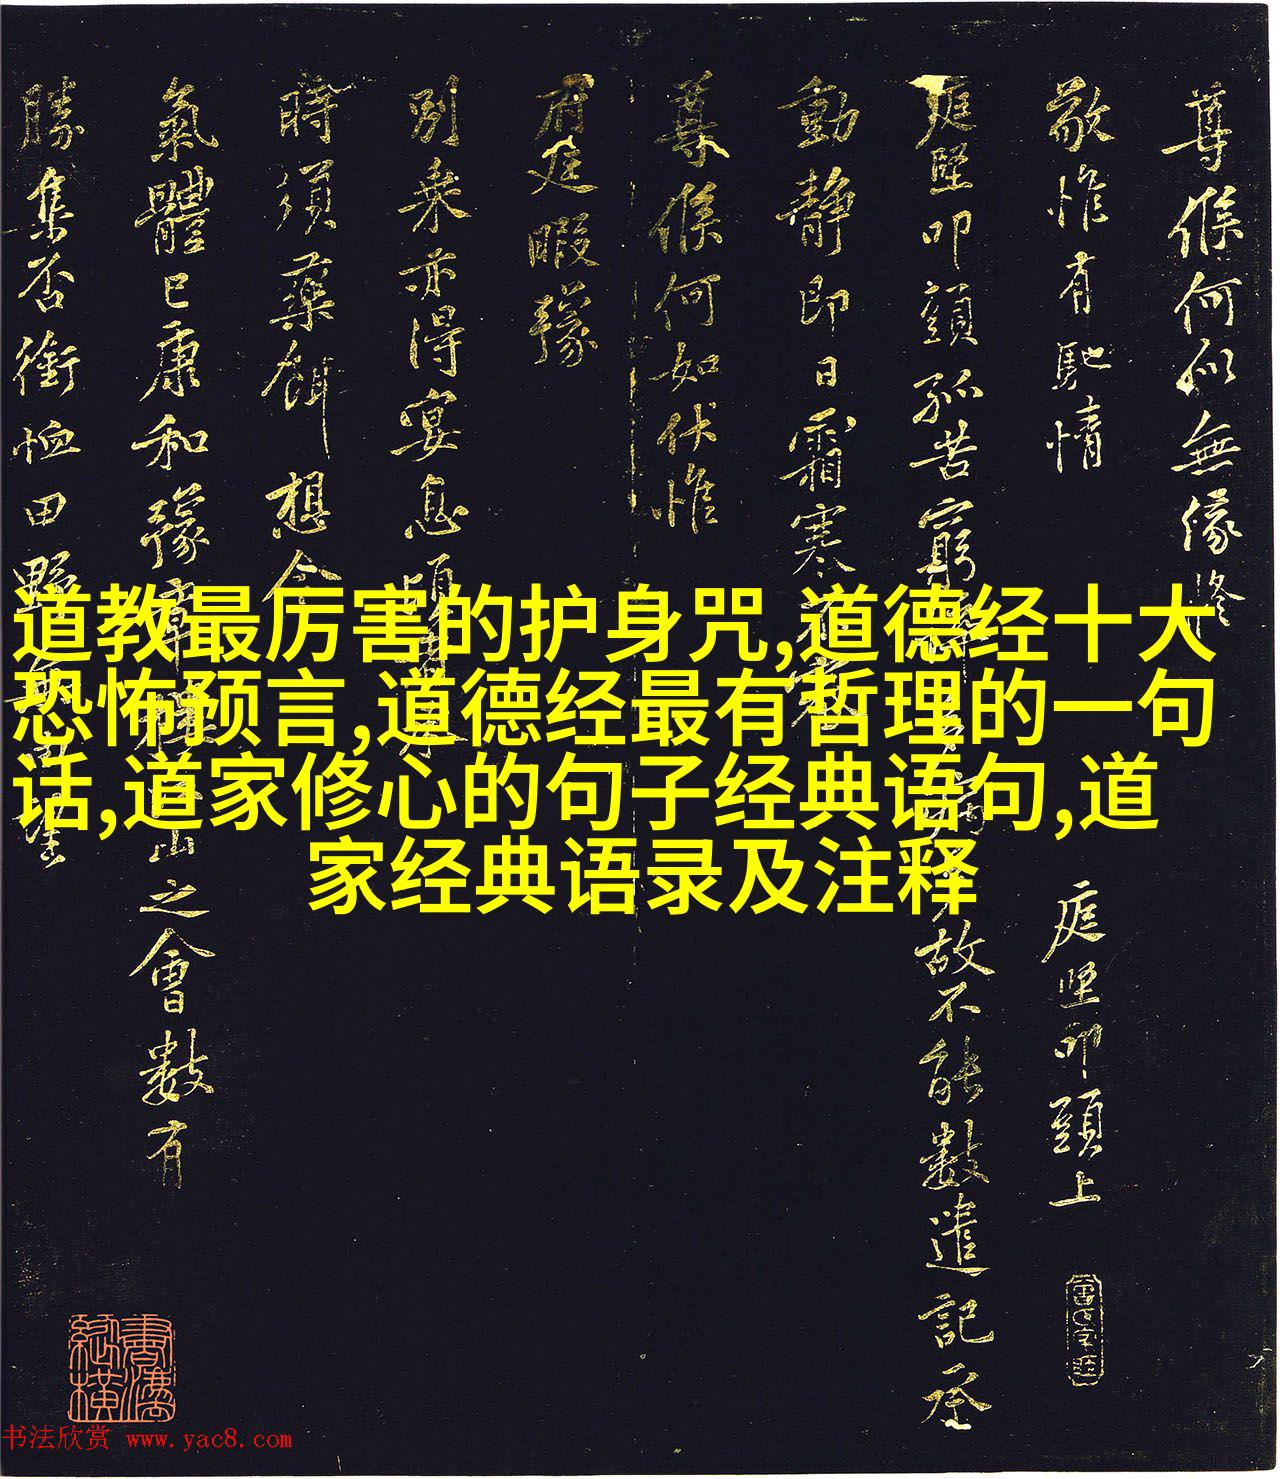 尊候何似無緣修
敬惟有馳情
庭堅叩頭上
庭堅叩頭孤苦窮
故不能數遣記承
動靜即日霜寒
尊候何如伏惟
府庭暇豫
別乘亦得宴息
時須藥餌想今
氣體已康和豫章
山之會數有
勝集否銜恤田野
道教最厉害的护身咒,道德经十大
恐怖预言,道德经最有哲理的一句
话,道家修心的句子经典语句,道
家经典语录及注释
書法縱橫
书法欣赏 www.yac8.com